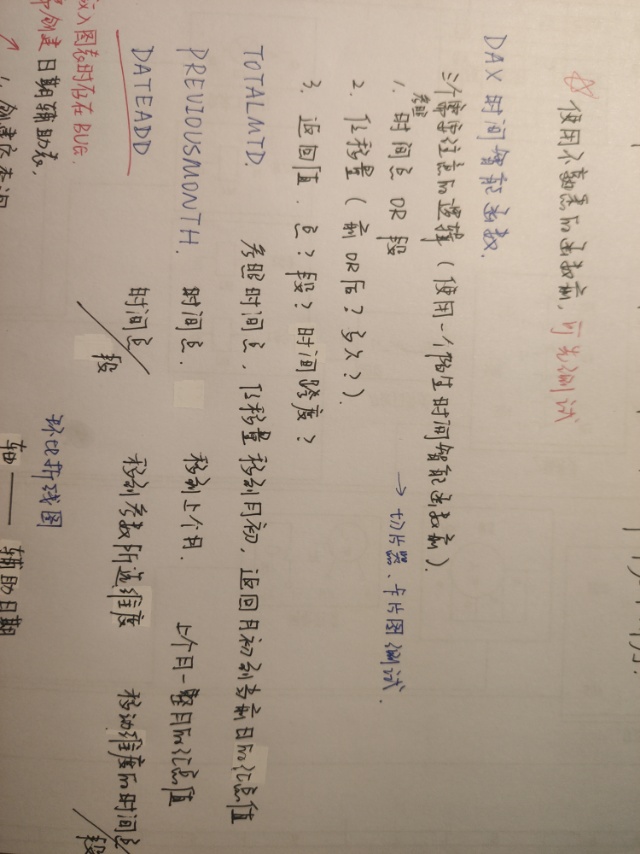 ☆ 使用不熟悉的函数前,可先测试
DAX 时间智能函数.
三个需要注意的逻辑(使用一个陌生时间智能函数前).
1. 参照时间点 OR 段 → 切片器、卡片图测试.
2. 位移量(前OR后?多久?).
3. 返回值.点?段?时间跨度?
TOTALMTD. 参照时间点,位移量移到月初,返回月初到当前日的汇总值
PREVIOUSMONTH. 时间点. 移到上个月. 上个月一整月的汇总值
DATEADD 时间点/段 移到参数所选维度 移动维度的时间点/段
放入图表时存在BUG. 环比折线图
创建日期辅助表, 轴—— 辅助日期